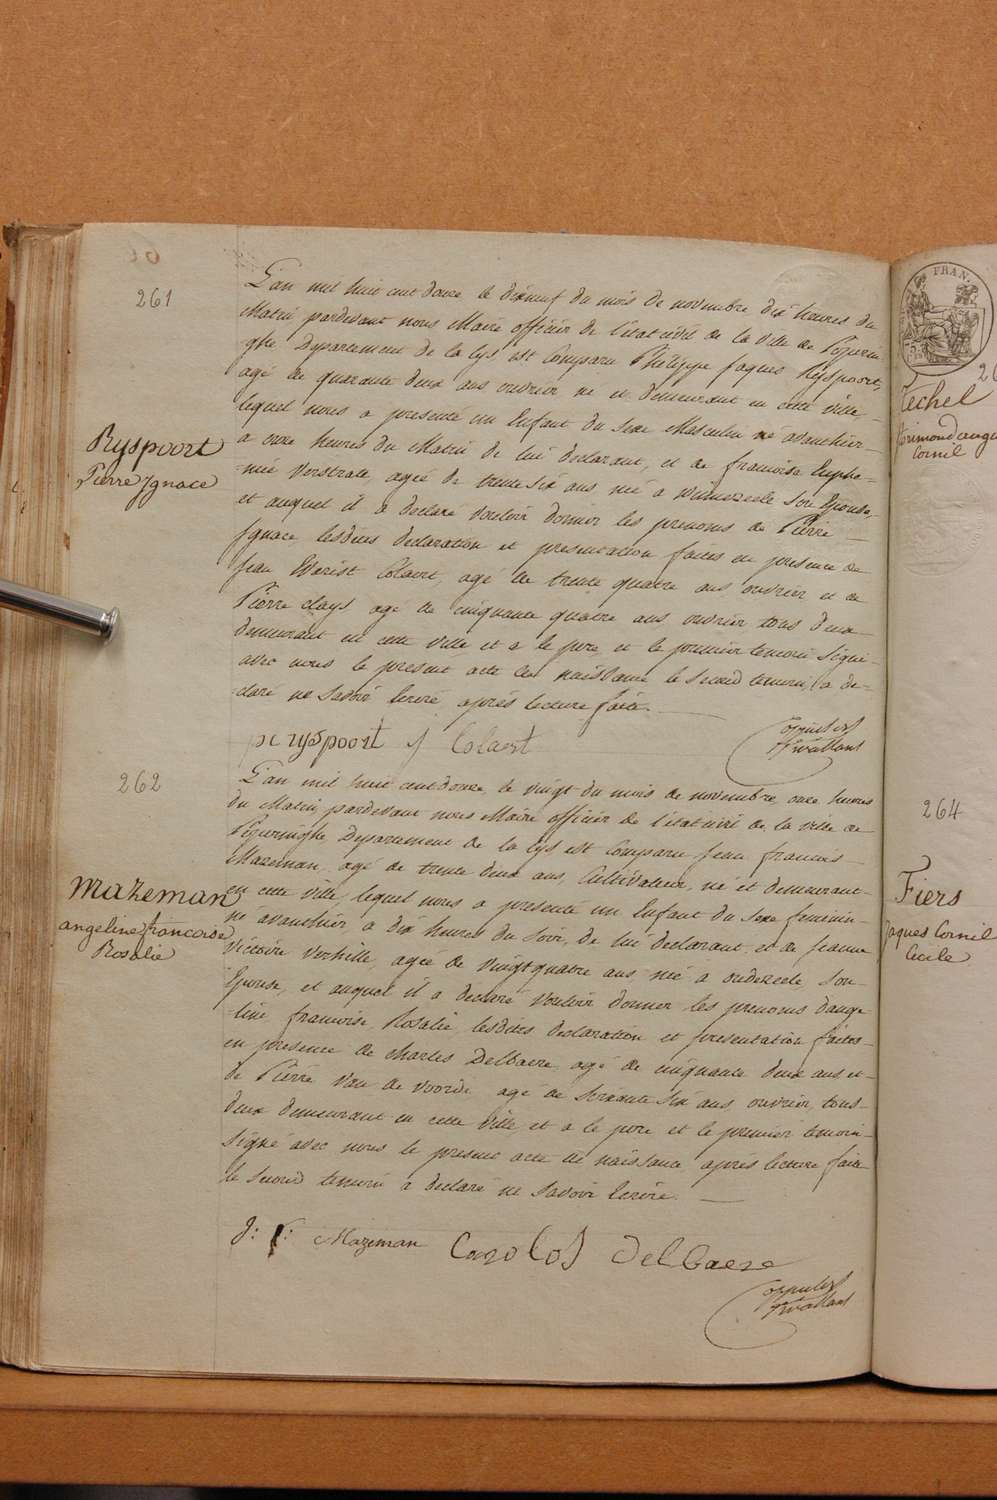 261
Ryspoort
Pierre Ignace
L'an mil huit cent douze le dixneuf du mois de novembre dix heures du
Matin pardevant nous Maire officier de l'état civil de la ville de Poperin
ghe Departement de la Lys est Comparu Philippe Jaques Ryspoort,
agé de quarante deux ans ouvrier né et demeurant en cette ville
lequel nous a presenté un Enfant du sexe Masculin né avanthier
a onze heures du Matin de lui declarant, et de francoise Eupho-
mie Verstraete, agée de trente six ans née a winnezeele son Epouse,
et auquel il a declaré vouloir donner les prenoms de Pierre
Ignace lesdites declaration et presentation faites en presence de
Jean Colaert, agé de trente quatre ans, ouvrier et de
Pierre Clays agé de cinquante quatre ans ouvrier tous deux
demeurant en cette ville et a le pere et le premier temoin signé
avec nous le present acte de naissance le second temoin, a de-
claré ne savoir ecrire, après lecture faite.
pi ryspoort j Colaert
262
Mazeman
angeline francoise
Rosalie
L'an mil huit cent douze, le vingt du mois de novembre, onze heures
du Matin, pardevant nous Maire officier de l'état civil de la ville de
Poperinghe, Departement de la Lys est Comparu Jean francois
Mazeman, agé de trente deux ans, Cultivateur, né et demeurant
en cette ville, lequel nous a presenté un Enfant du sexe feminin
né avanthier, a dix heures du soir, de lui declarant, et de Jeanne
Victoire Verhille, agée de vingt quatre ans, née a oudezeele, son
Epouse, et auquel il a declaré vouloir donner les prenoms d'ange
line francoise, Rosalie, lesdites declaration et presentation faites
en presence de Charles Delbaere, agé de cinquante deux ans, et
de Pierre Van de Voorde agé de soixante six ans, ouvrier, tous
deux demeurant en cette ville, et a le pere et le premier temoin
signé avec nous le present acte de naissance, après lecture faite
le second temoin a declaré ne savoir ecrire.
J: f: Mazeman Carolos Delbaere
FRAN.
Techel
Cornil
264
Fiers
Jaques Cornil
Cecile